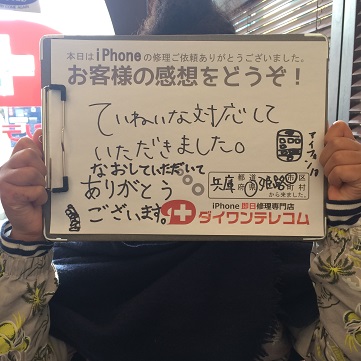 本日はiPhoneの修理ご依頼ありがとうございました。
お客様の感想をどうぞ!
ていねいな対応して
いただきました。
なおしていただいて
ありがとう
ございます。
兵庫 都道府県 姫路 市区町村
から来ました。
iPhone 即日修理専門店
ダイワンテレコム